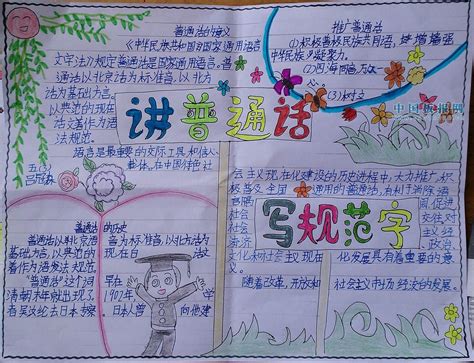 普通话的含义
《中华民族共和国国家通用语言
文字法》规定普通话是国家通用语言。普
通话以北京话为标准音,以北方
话为基础方言,
以典范的现在
话文著作为语
法规范。
语言是最重要的交际工具和信息
载体,在中国特色
推广普通话
(1)积极普及民族共同语,
增强
中华民族凝聚力。
(2)四海同
(3)树立
中国板报网
讲普通话
五(2)
社会主义现在化建设的历史进程中,大力推广,积
极普及全国通用的普通话,有利于消除语
社会
社会
经济
写规范字
促进
交往,对
主义
政治
社会主义
化发展具有着重要的意
义。
随着改革、开放和
社会主义市场经济的发展。
普通话的历史
普通话以北京语音为标准音,以北方话为
基础方言,以典范的现在
著作为语法规范。
"普通话"这个词早在
清朝末年就出现了。1902年,
者吴汝纶去日本考察,日本人曾向他建